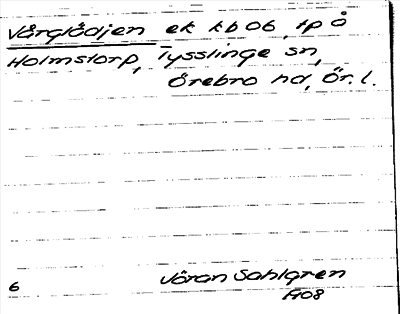 Vårglädjen ek kb 06, tp å
Holmstorp, Tysslinge sn,
Örebro hd, Ör. l.
6
Jöran Sahlgren
1908